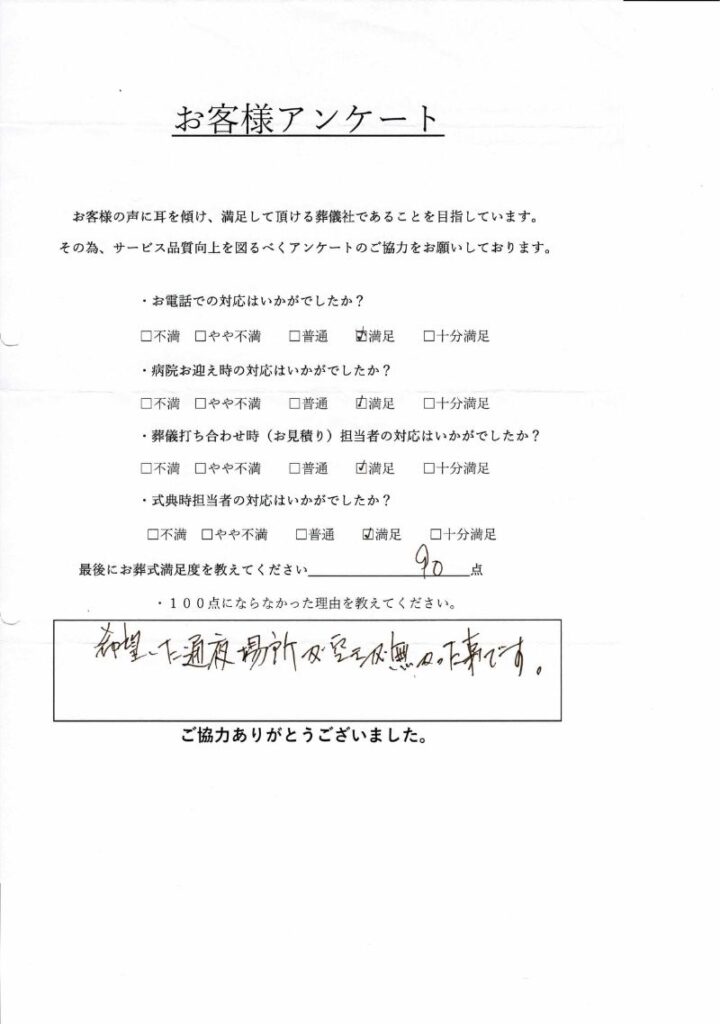 お客様アンケート
お客様の声に耳を傾け、満足して頂ける葬儀社であることを目指しています。
その為、サービス品質向上を図るべくアンケートのご協力をお願いしております。
・お電話での対応はいかがでしたか？
□不満 □やや不満 □普通 ☑満足 □十分満足
・病院お迎え時の対応はいかがでしたか？
□不満 □やや不満 □普通 ☑満足 □十分満足
・葬儀打ち合わせ時（お見積り）担当者の対応はいかがでしたか？
□不満 □やや不満 □普通 ☑満足 □十分満足
・式典時担当者の対応はいかがでしたか？
□不満 □やや不満 □普通 ☑満足 □十分満足
最後にお葬式満足度を教えてください 90 点
・１００点にならなかった理由を教えてください。
希望した通夜場所が空きが無かった事です。
ご協力ありがとうございました。